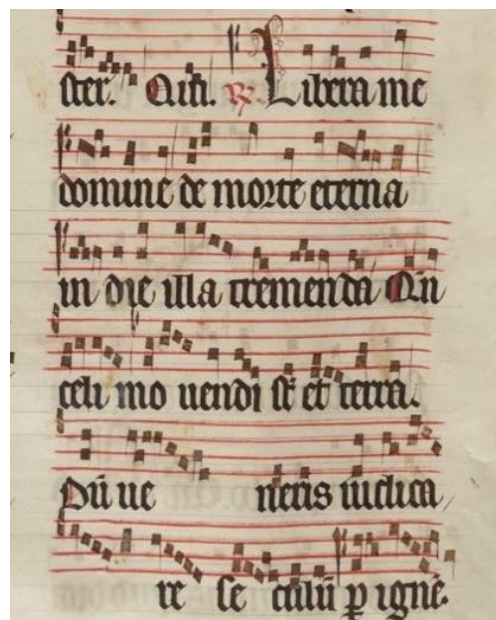 ster. Qui. ℟ Libera me
domine de morte eterna
in die illa tremenda Qn̄
celi mo uendi st̄ et terra.
Dū ue neris iudica
re se culū ꝑ ignē.